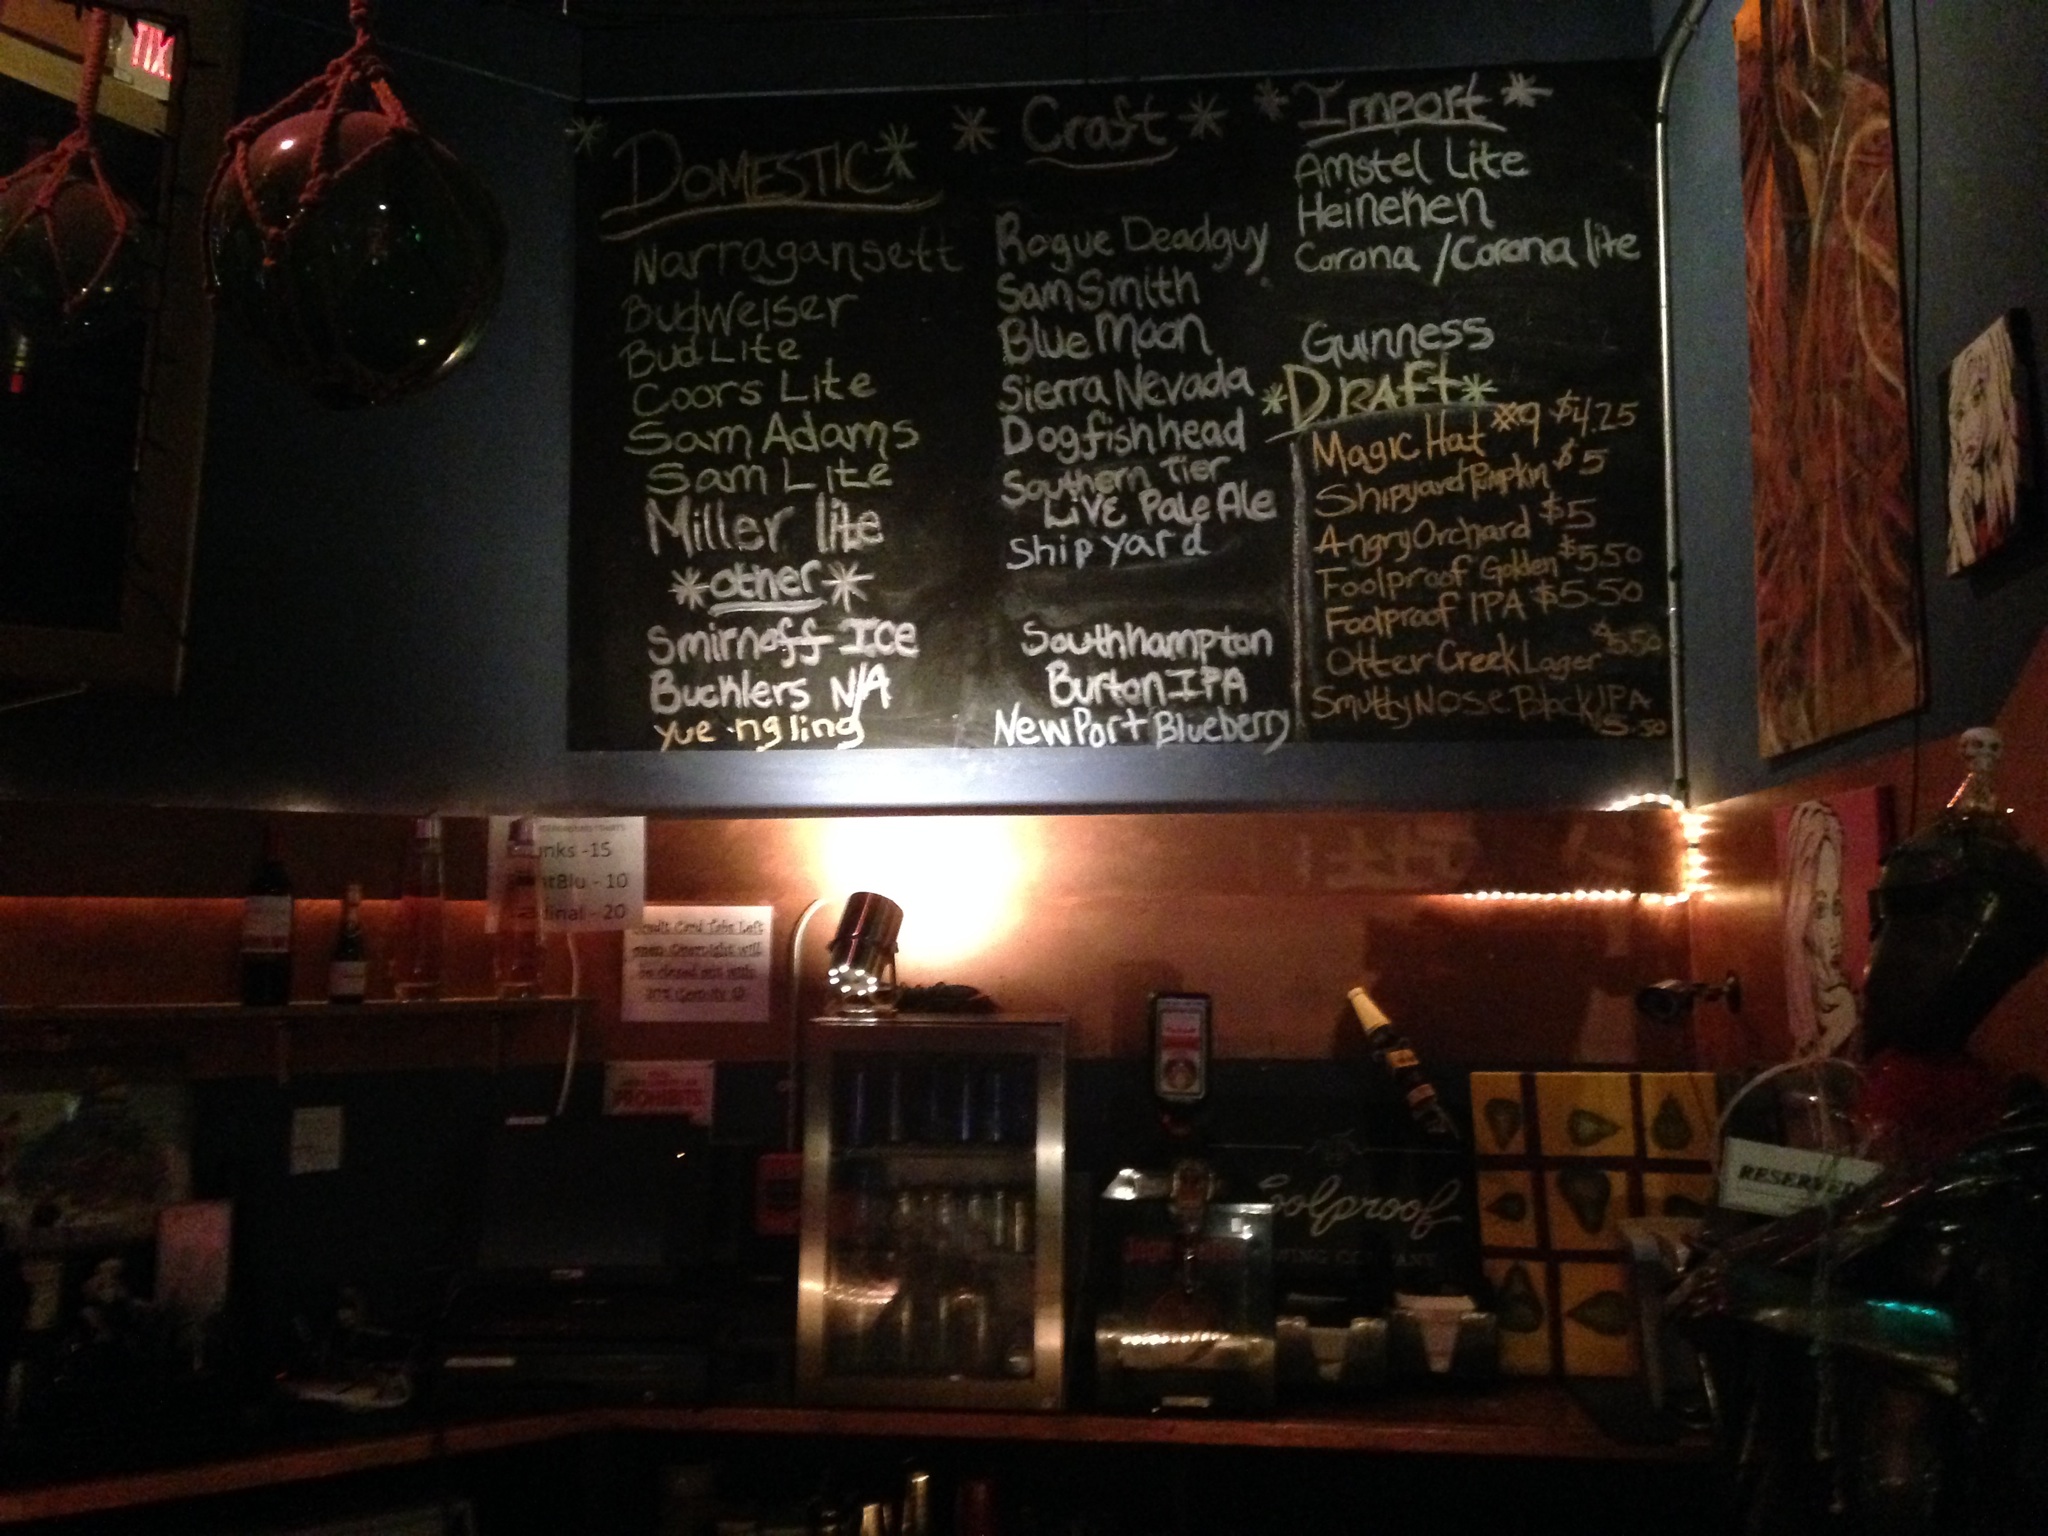 *DOMESTIC*
Narragansett
Budweiser
Bud Lite
Coors Lite
Sam Adams
Sam Lite
Miller lite
*other*
Smirnoff Ice
Bucklers N/A
Yue-ngling
*Craft*
Rogue Deadguy
Sam Smith
Blue Moon
Sierra Nevada
Dogfishhead
Southern Tier
LiVE Pale Ale
Shipyard
Southhampton
Burton IPA
NewPort Blueberry
*Import*
Amstel Lite
Heineken
Corona /Corona lite
Guinness
*DRAFT*
Magic Hat #9 $4.25
Shipyard Pumpkin $5
Angry Orchard $5
Foolproof Golden $5.50
Foolproof IPA $5.50
Otter Creek Lager $5.50
SmuttyNose Black IPA
5.50
-15
- 10
- 20
Card Tabs Left
open Overnight will
be closed out with
PROHIBITS
RESERVED